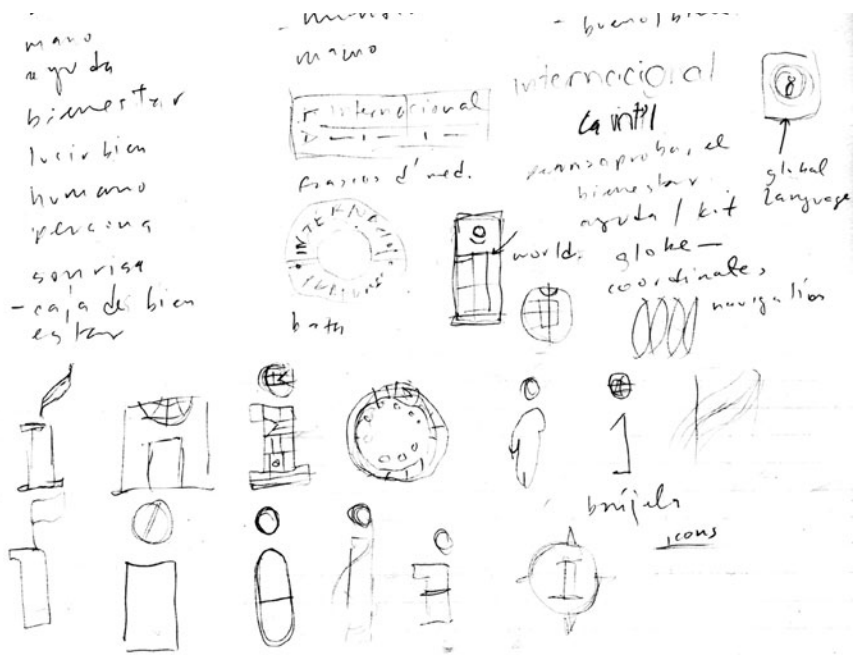 mano
ayuda
bienestar
lucir bien
humano
persona
sonrisa
- caja de bien
estar
mano
Internacional
frascos d' med.
INTERNACI
world
internacional
la int'l
bienestar
ayuda / kit
globe —
coordinates
navigation
global
language
brújula
icons
I